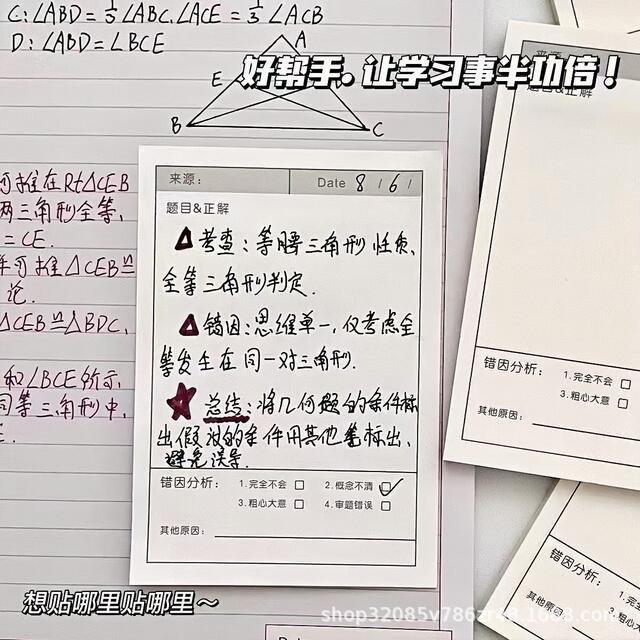 C:∠ABD=⅓∠ABC,∠ACE=⅓∠ACB
D:∠ABD=∠BCE
A
E
B
C
好帮手,让学习事半功倍!
可推在Rt△CEB
两三角形全等,
=CE.
可推△CEB≌
论.
△CEB≌△BDC,
和∠BCE所示
同等三角形中,
来源:
Date 8/6/
题目&正解
△考查:等腰三角形性质、
全等三角形判定.
△错因:思维单一,仅考虑全
等发生在同一对三角形.
★总结:将几何题的条件标
出假设的条件用其他笔标出,
避免误导.
错因分析:
1.完全不会 □ 2.概念不清 ☑
3.粗心大意 □ 4.审题错误 □
其他原因:
来源:
题目&正解
错因分析:
1.完全不会 □
3.粗心大意 □
其他原因:
错因分析:
1.完全不会
3.粗心大
其他原
想贴哪里贴哪里～